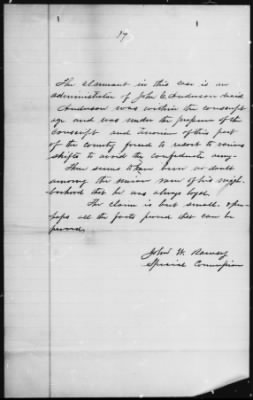 17
The claimant in this case is an
administrator of John C Anderson said
Anderson was within the conscript
age and was under the pressure of the
Conscript and of this part
of the country forced to resort to various
shifts to avoid the confederate army
There seems to have been no doubt
among the union men of his neigh
borhood that he was always loyal.
The claim is but small & per-
haps all the facts proved that can be
proved.
John W. Ramsey
Special Commission